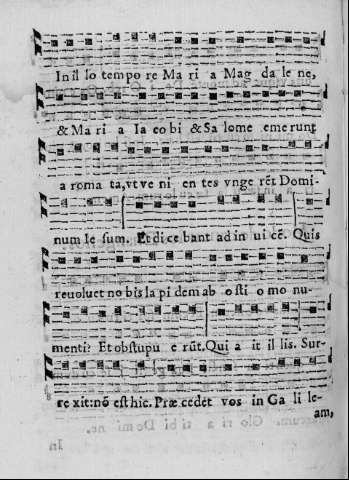 In il lo tempo re Ma ri a Mag da le ne,
& Ma ri a Ia co bi & Sa lome emerunt
a roma ta, vt ve ni en tes vnge rēt Domi-
num Ie sum. Et di ce bant ad in ui cē. Quis
reuoluet no bis la pi dem ab o sti o mo nu-
menti? Et obstupu e rūt. Qui a it il lis. Sur-
re xit: nō est hic. Præ cedet vos in Ga li le-
am,